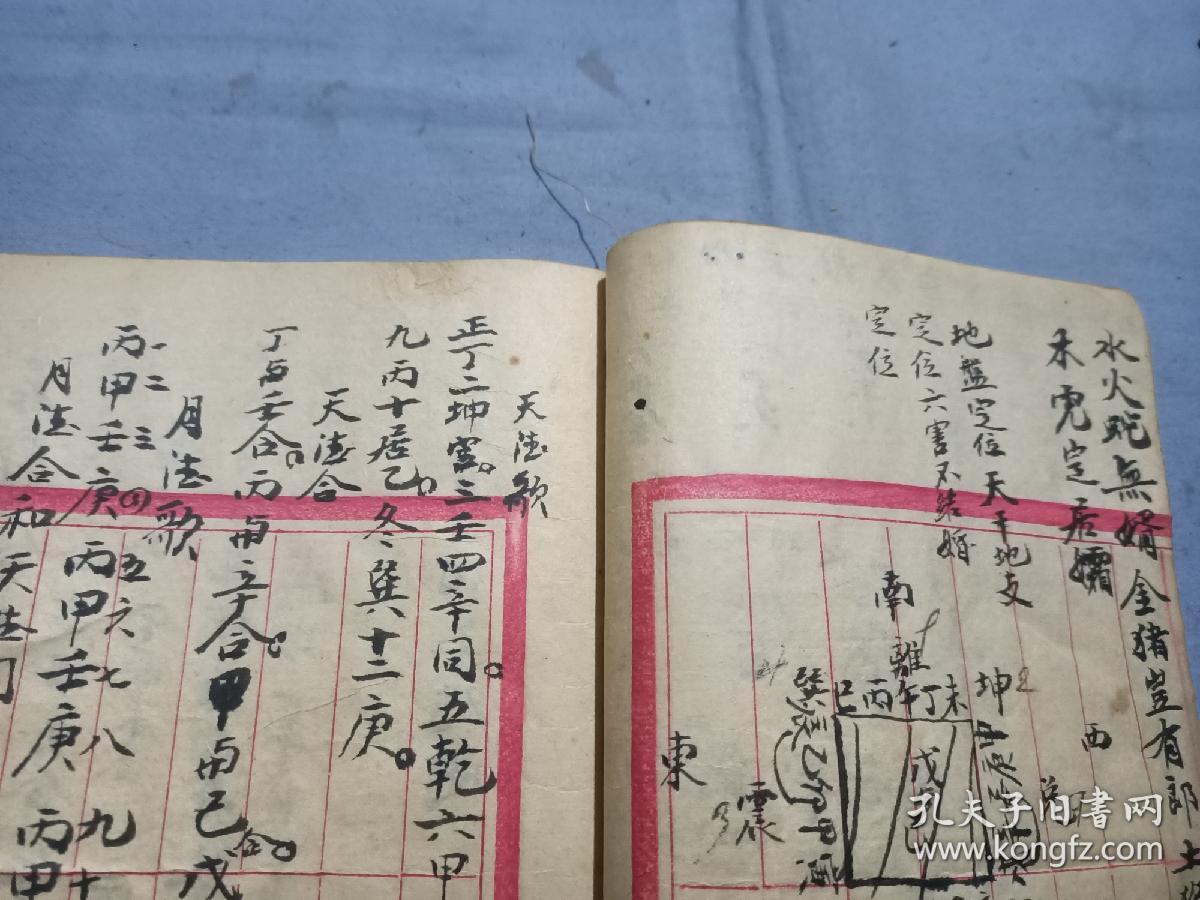 水火蛇無婿金猪豈有郎土
木虎定居孀
地盤定位天干地支
定位六害不結婚
定位
南
離
巳丙午丁未
坤2
西
巽辰乙卯甲
震
3
東
戊
天德歌
正丁二坤宮三壬四辛同五乾六甲
九丙十居乙冬巽十二庚
天德合
丁与壬合丙与辛合甲与己合戊
月德歌
一二三四五六七八九十
丙甲壬庚丙甲壬庚丙甲
月德合和天德同
孔夫子旧书网
www.kongfz.com